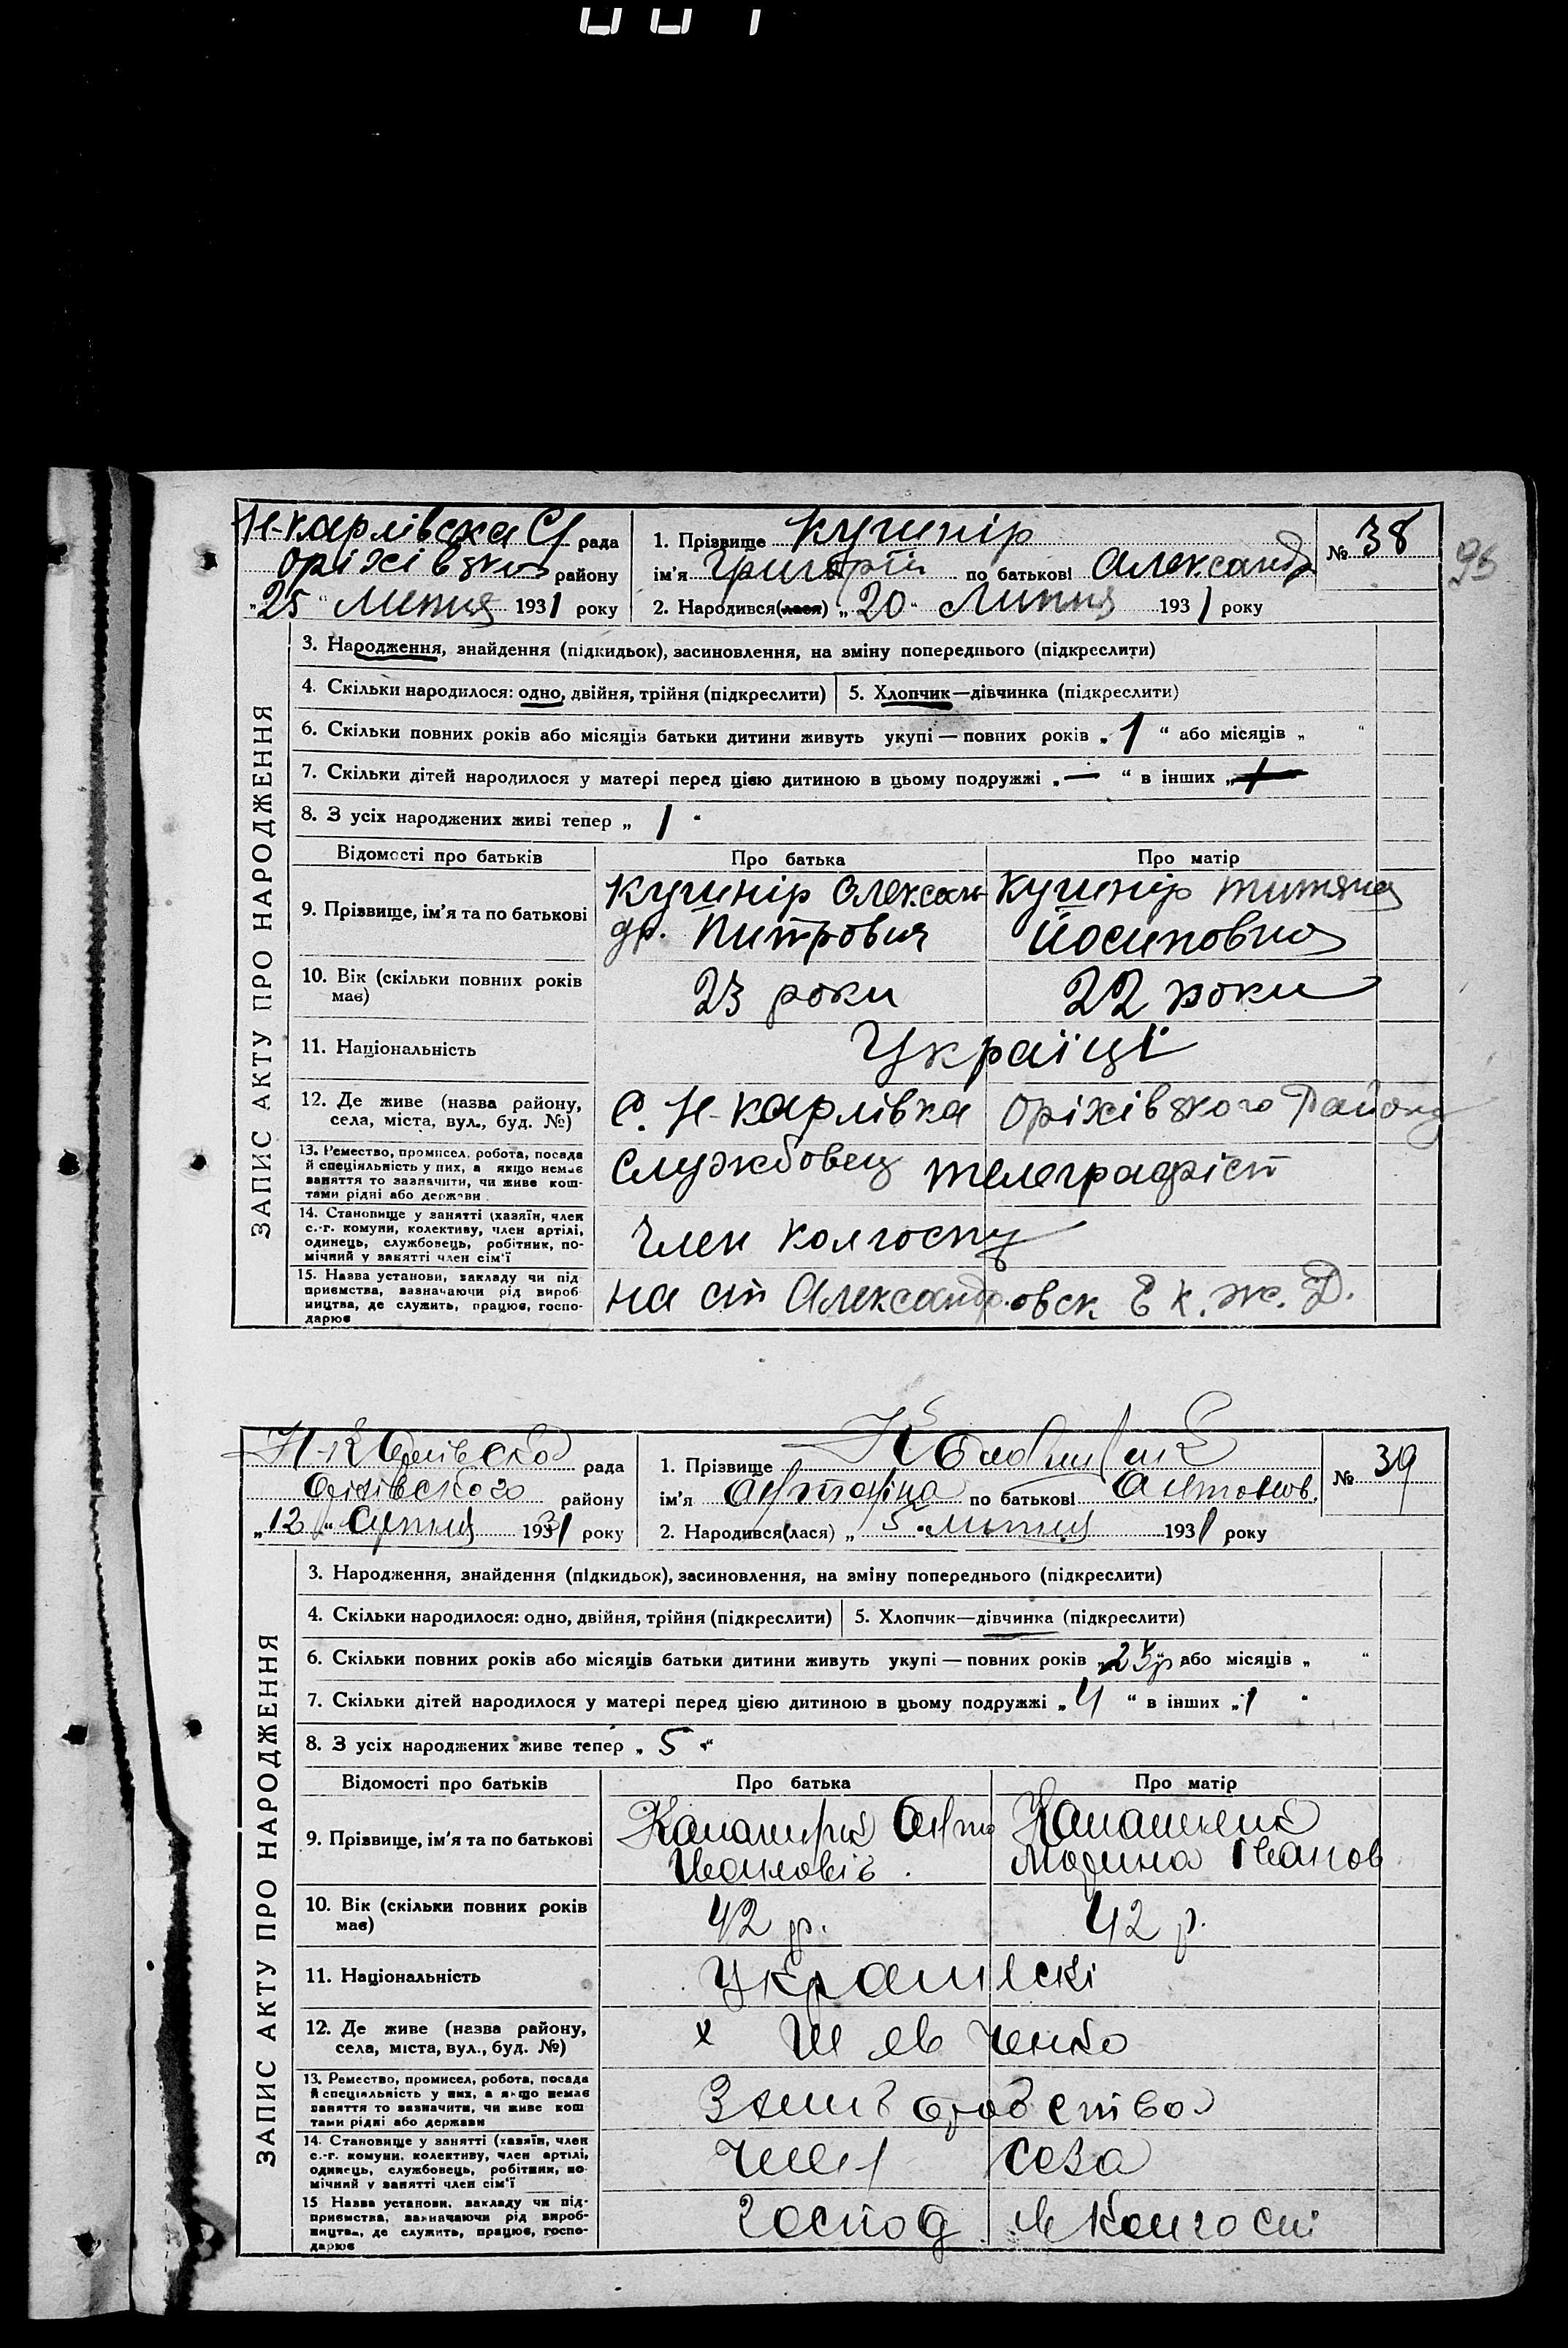 Н-карлівска С/ рада
Оріхівяком району
„25“ Липня 1931 року
1. Прізвище Кушнір
ім'я Григорій по батькові Александр
2. Народився(лася) „20“ Липня 1931 року
№ 38
95
ЗАПИС АКТУ ПРО НАРОДЖЕННЯ
3. Народження, знайдення (підкидьок), засиновлення, на зміну попереднього (підкреслити)
4. Скільки народилося: одно, двійня, трійня (підкреслити)
5. Хлопчик—дівчинка (підкреслити)
6. Скільки повних років або місяців батьки дитини живуть укупі — повних років „1“ або місяців „ “
7. Скільки дітей народилося у матері перед цією дитиною в цьому подружжі „—“ в інших „
8. З усіх народжених живі тепер „1“
Відомості про батьків Про батька Про матір
9. Прізвище, ім'я та по батькові
Кушнір Олексан-
др. Питровия
Кушнір титяна
Йосиповна
10. Вік (скільки повних років
має)
23 роки
22 роки
11. Національність
Украіці
12. Де живе (назва району,
села, міста, вул., буд. №)
С. Н-карлівка Оріхівякого Району
13. Ремество, промисел, робота, посада
й спеціяльність у них, а якщо немає
заняття то зазначити, чи живе кош-
тами рідні або держави
Службовец телеграфіст
14. Становище у занятті (хазяїн, член
с.-г. комуни, колективу, член артілі,
одинець, службовець, робітник, по-
мічний у занятті член сім'ї
Член колгоспу
15. Назва установи, закладу чи під
приємства, зазначаючи рід вироб
ництва, де служить, працює, госпо-
дарює
на ст Александровск Ек. ж. Д.
Н-Карлівска рада
Оріхівского району
„12“ Серпня 1931 року
1. Прізвище
ім'я по батькові Антонов.
2. Народився(лася) „5“ липня 1931 року
№ 39
ЗАПИС АКТУ ПРО НАРОДЖЕННЯ
3. Народження, знайдення (підкидьок), засиновлення, на зміну попереднього (підкреслити)
4. Скільки народилося: одно, двійня, трійня (підкреслити)
5. Хлопчик—дівчинка (підкреслити)
6. Скільки повних років або місяців батьки дитини живуть укупі — повних років „ або місяців „ “
7. Скільки дітей народилося у матері перед цією дитиною в цьому подружжі „4“ в інших „1“
8. З усіх народжених живе тепер „5“
Відомості про батьків Про батька Про матір
9. Прізвище, ім'я та по батькові
Івановів
Іванов
10. Вік (скільки повних років
має)
42 р.
42 р.
11. Національність
Украінскі
12. Де живе (назва району,
села, міста, вул., буд. №)
х Шевченко
13. Ремество, промисел, робота, посада
й спеціяльність у них, а якщо немає
заняття то зазначити, чи живе кош
тами рідні або держави
14. Становище у занятті (хазяїн, член
с.-г. комуни, колективу, член артілі,
одинець, службовець, робітник, по-
мічний у занятті член сім'ї
Член соза
15 Назва установи, закладу чи під-
приємства, зазначаючи рід вироб-
ництва, де служить, працює, госпо-
дарює
Господ в Колгоспі